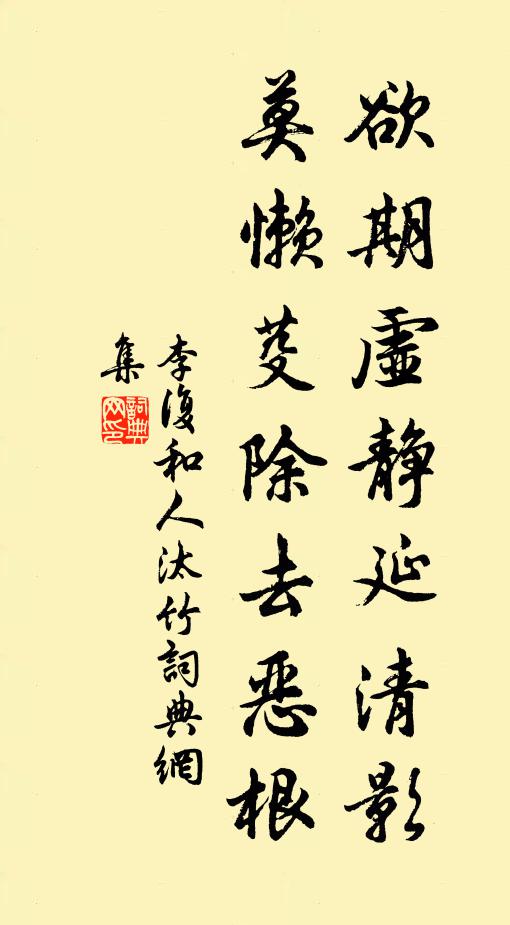 欲期虛靜延清影
莫懶芟除去惡根
李復和人汰竹詞典網
集
詞典網印